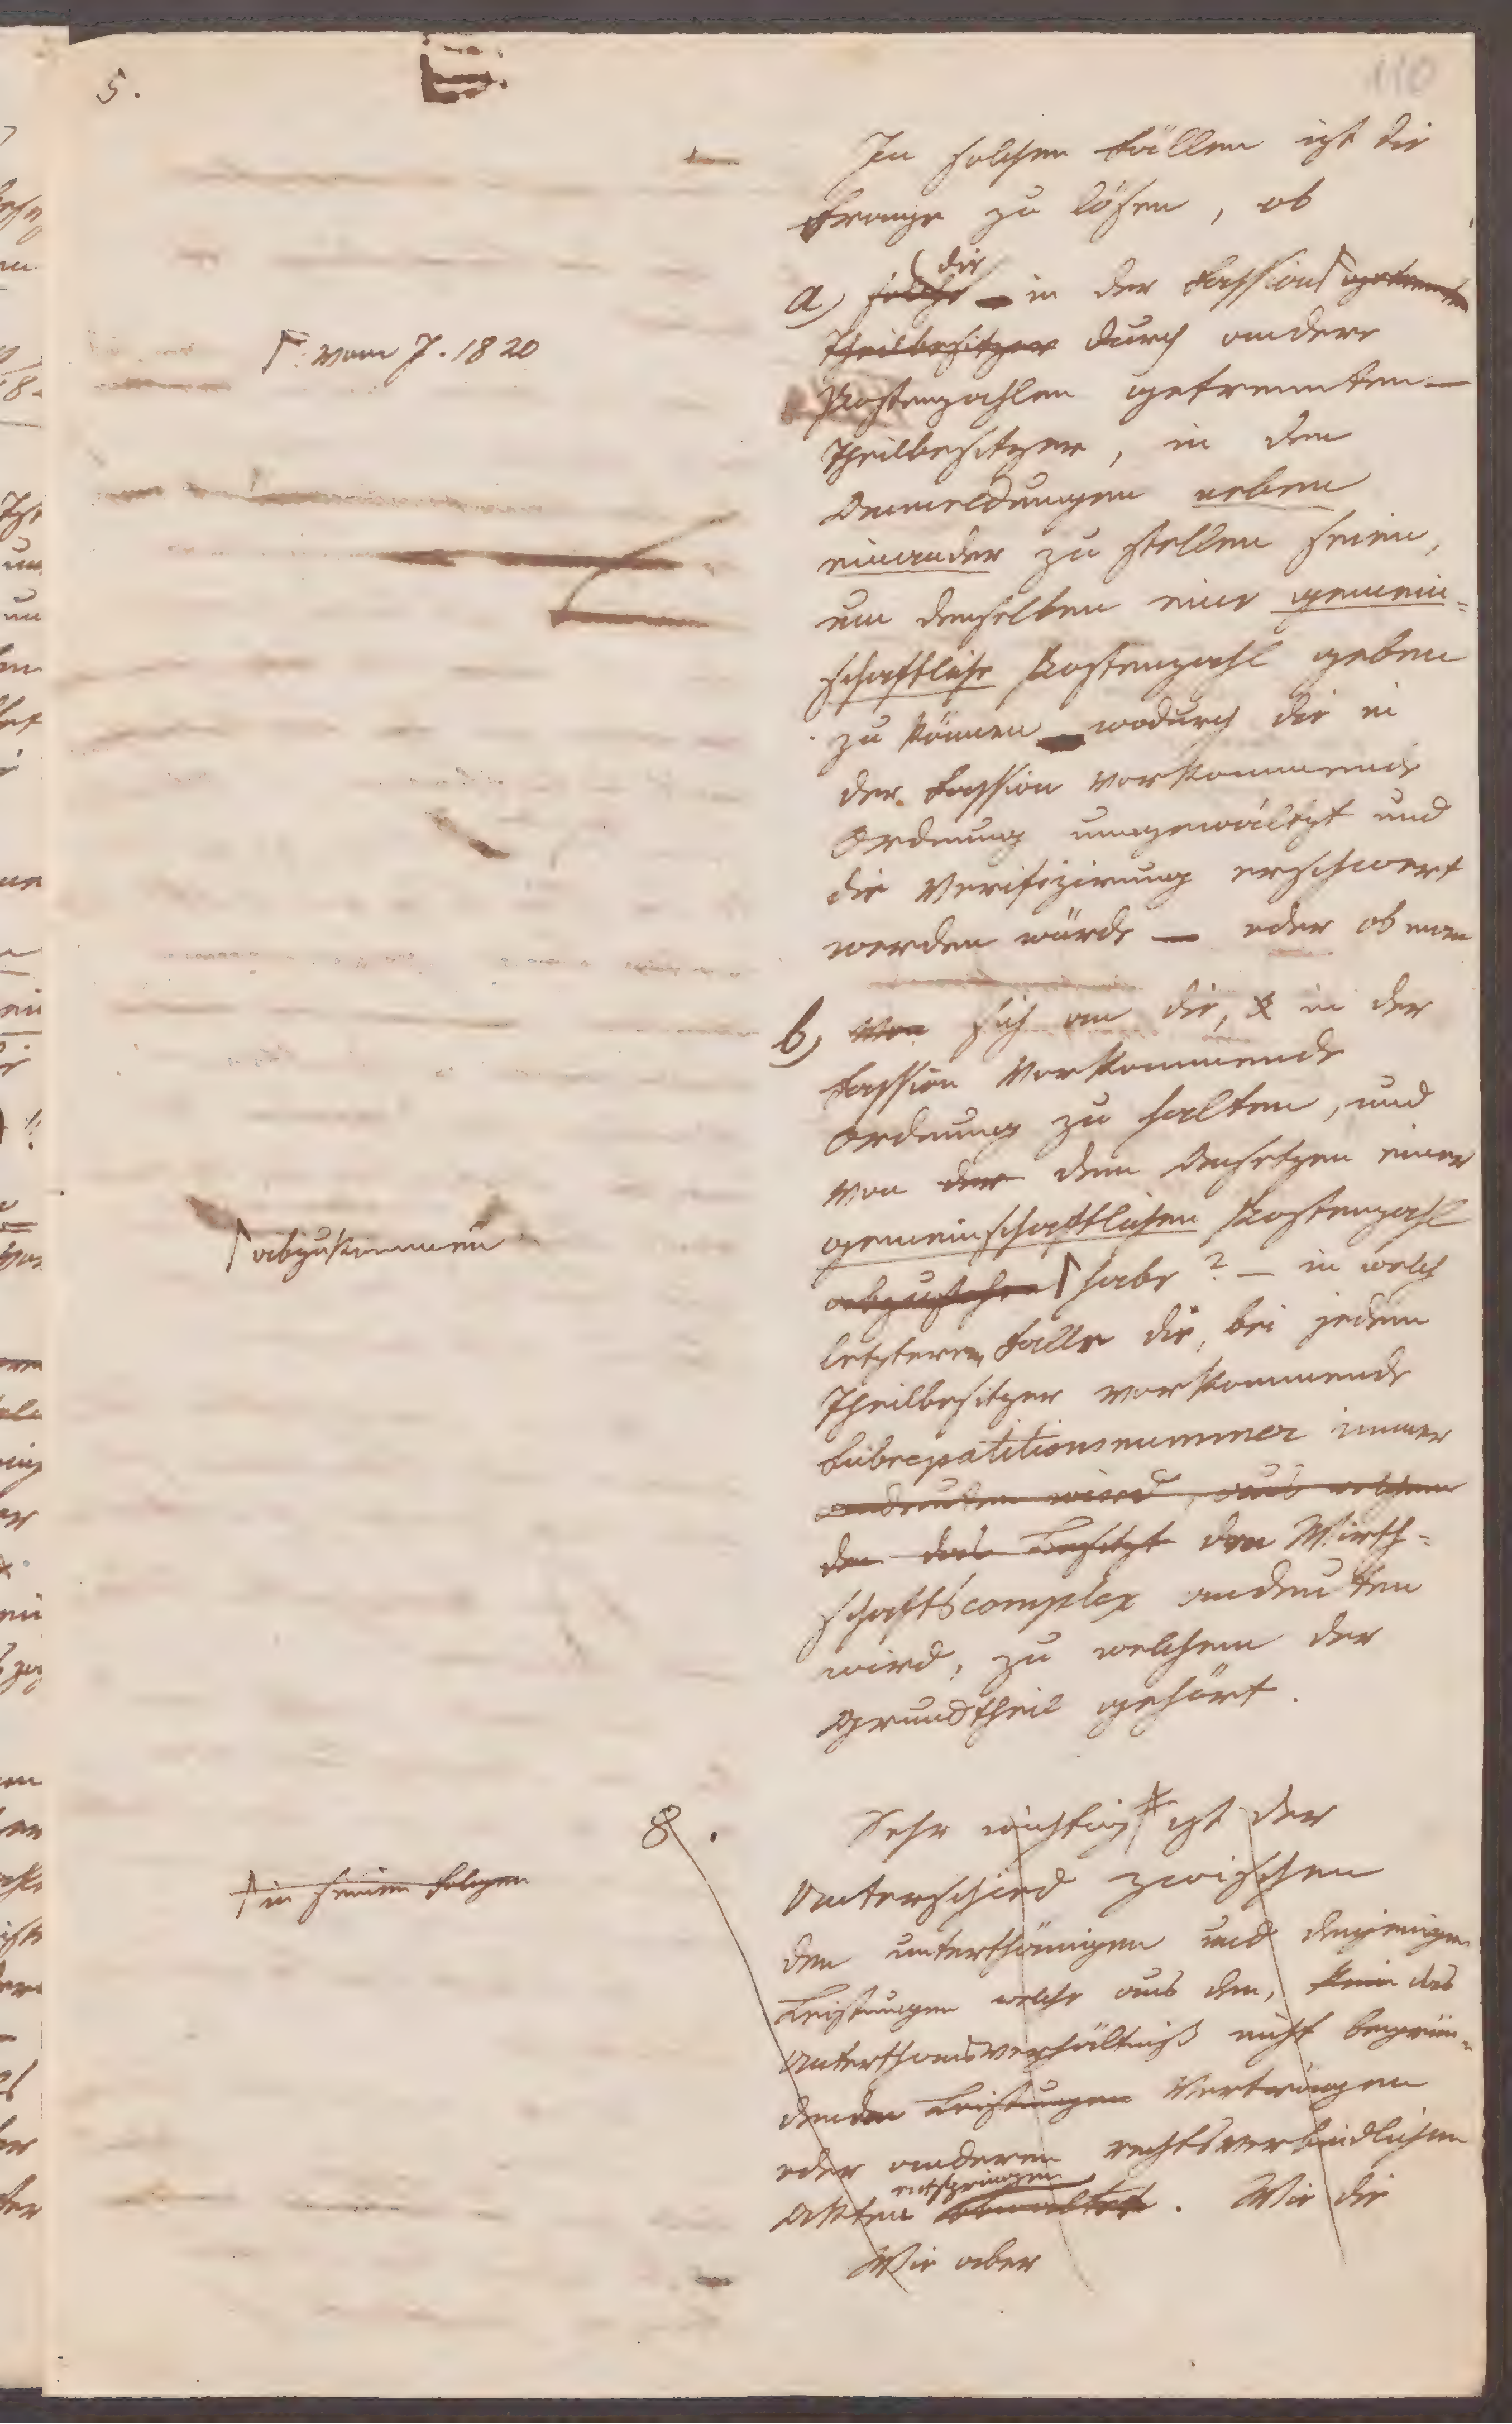 5.
110
In solchen Fällen ist die
Frage zu lösen, ob
die
a) solche in der Fassion ⌈ getrennte
Theilbesitzer durch andere
⌈: vom J. 1820
Postenzahlen getrennten —
Theilbesitzer, in den
Anmeldungen neben
einander zu stellen seien,
um denselben eine gemein=
schaftliche Postenzahl geben
zu können wodurch die in
der Fassion vorkommende
Ordnung umgewältzt und
die Verifizirung erschwert
werden würde — oder ob man
b) Von sich an die, in der
Fassion vorkommende
Ordnung zu halten, und
von der dem Ansetzen einer
gemeinschaftlichen Postenzahl
⌈ abzukommen
abzustehen ⌈ habe? — in welch
letzterem Falle die, bei jedem
Theilbesitzer vorkommende
Subrepatitionsnummer immer
andeuten wird, aus welchem
den das Besitzt den Wirth=
schaftscomplex andeuten
wird, zu welchem der
Grundtheil gehört.
8. Sehr wichtig ⌈* ist der
⌈ in seinen Folgen
Unterschied zwischen
den unterthänigen und denjenigen
Leistungen welche aus den, kein das
Unterthansverhältniß nicht begrün=
denden Leistungen Verträgen
oder anderen rechtsverbindlichen
entspringen
Akten . Wie die
Wie aber